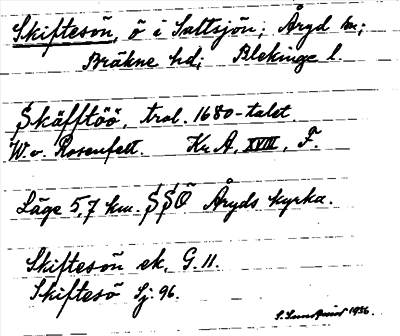 Skiftesön, ö i Saltsjön; Åryd sn;
Bräkne hd; Blekinge l.
Skäfftöö, trol. 1680-talet.
W. v. Rosenfelt. Kr A, XVIII, F.
Läge 5,7 km. SSO Åryds kyrka.
Skiftesön ek. G. 11.
Skiftesö Sj. 96.
S. Lundqvist 1936.